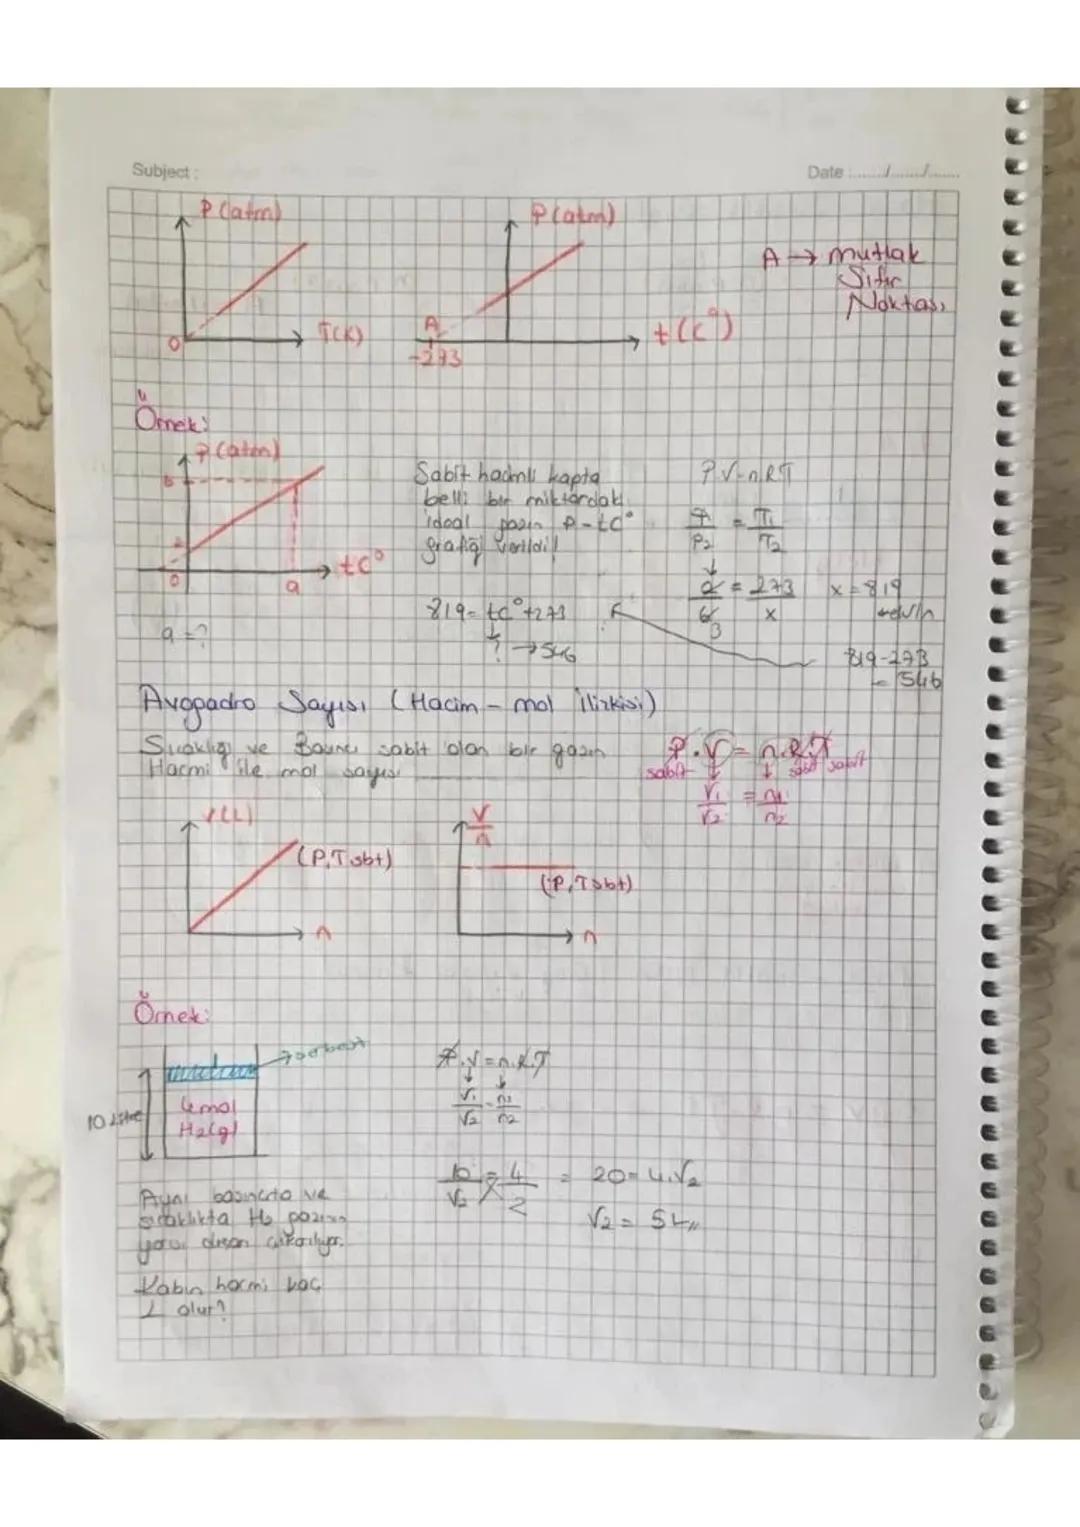 Subject :
Date :......../......../........
P(atm)
T(K)
0
P(atm)
A
-273
t(c°)
A → mutlak
Sıfır
Noktası
Örnek:
P(atm)
6
2
0
a
tc°
a = ?
Sabit hacimli kapta
belli bir miktardaki
ideal gazın P-tc°
grafiği verildi!
P.V=n.R.T
P1/P2 = T1/T2
2/6 = 273/x
3
x = 819
819 = tc°+273
? → 546
819-273
= 546
Avogadro Sayısı (Hacim - mol ilişkisi)
Sıcaklığı ve Basıncı sabit olan bir gazın
Hacmi ile mol sayısı
P.V = n.R.T
sabit sabit sabit
V1/V2 = n1/n2
V(L)
(P,T sbt)
n
V/n
(P,T sbt)
n
Örnek:
serbest
10 Litre
4mol
H2(g)
P.V=n.R.T
V1/V2 = n1/n2
10/V2 = 4/2 = 20=4.V2
V2 = 5L
Aynı basınçta ve
sıcaklıkta H2 gazının
yarısı dışarı çıkarılıyor.
Kabın hacmi kaç
L olur?